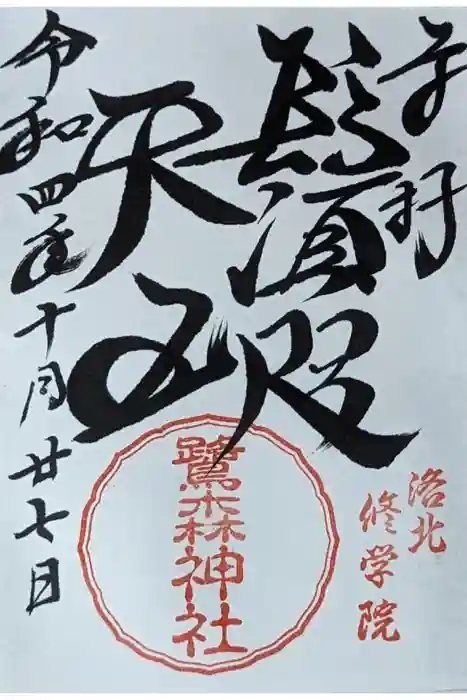 奉拝
洛北
修学院
鬚咫
天王
鷺森神社
令和四年十月廿七日